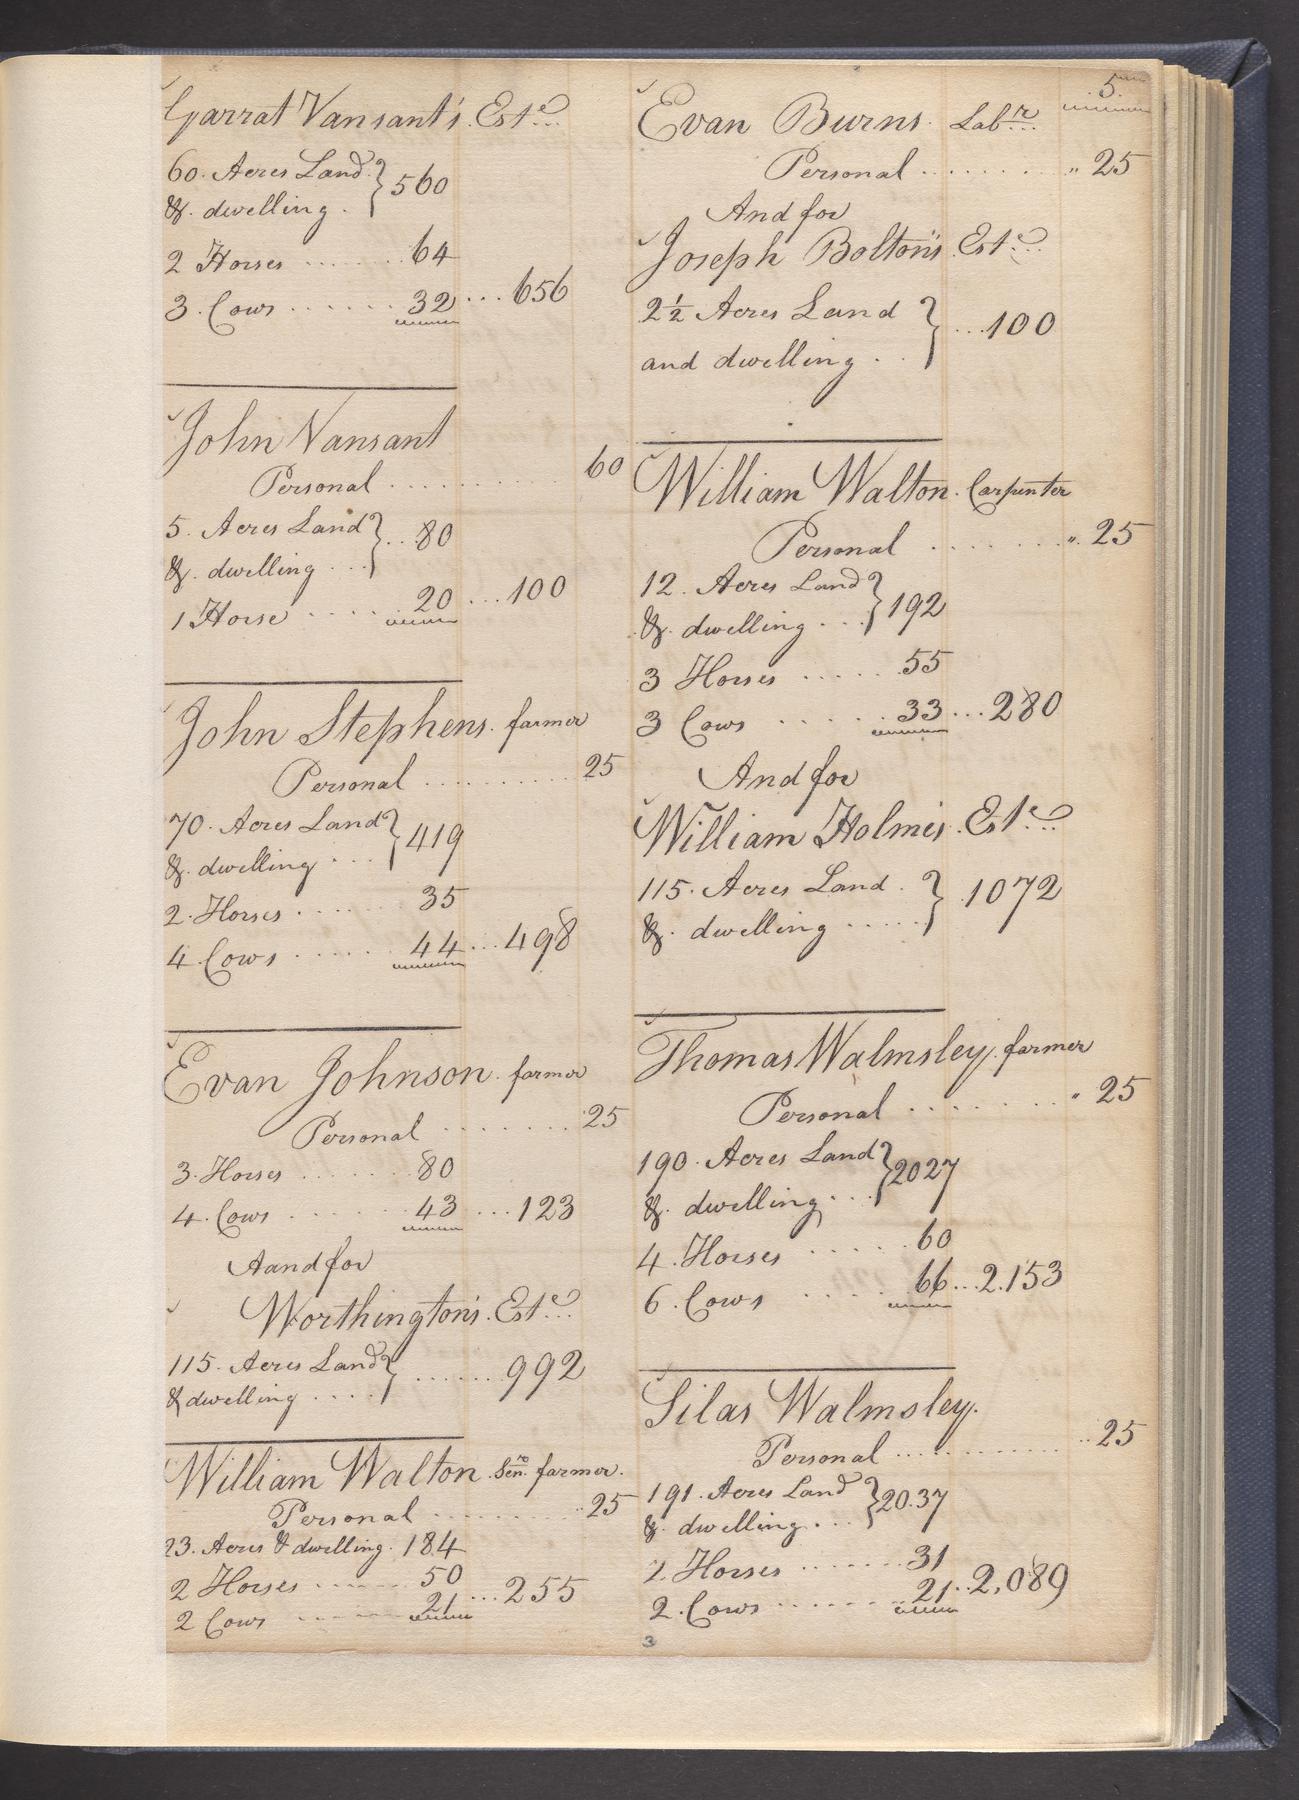 Garrat Vansant's Est.e
60. Acres Land } 560
&. dwelling .
2 Horses ...... 64
3. Cows ...... 32 ... 656
John Vansant
Personal .......... 60
5. Acres Land } .. 80
&. dwelling ...
1 Horse ..... 20 ... 100
John Stephens. farmer
Personal .......... 25
70. Acres Land } 419
&. dwelling ...
2. Horses ...... 35
4. Cows ...... 44 ... 498
Evan Johnson. farmer
Personal ........ 25
3. Horses ...... 80
4. Cows ...... 43 ... 123
Aand for
Worthington's. Est.e
115. Acres Land } ...... 992
& dwelling ....
William Walton. Senr. farmer.
Personal .......... 25
23. Acres & dwelling. 184
2 Horses ...... 50
2 Cows ...... 21 ... 255
5
Evan Burns. Labr.
Personal ........ " 25
And for
Joseph Bolton's Est.e
2 1/2 Acres Land } ... 100
and dwelling ..
William Walton. Carpenter
Personal ....... " 25
12. Acres Land } 192
&. dwelling ...
3 Horses ..... 55
3 Cows ..... 33 ... 280
And for
William Holmes. Est.e
115. Acres Land . } 1072
&. dwelling .....
Thomas Walmsley. farmer
Personal ....... " 25
190. Acres Land } 2027
&. dwelling ...
4. Horses ..... 60
6. Cows ..... 66 ... 2.153
Silas Walmsley.
Personal ............ 25
191. Acres Land } 20.37
&. dwelling ...
2. Horses ...... 31
2. Cows ....... 21 .. 2,089
3